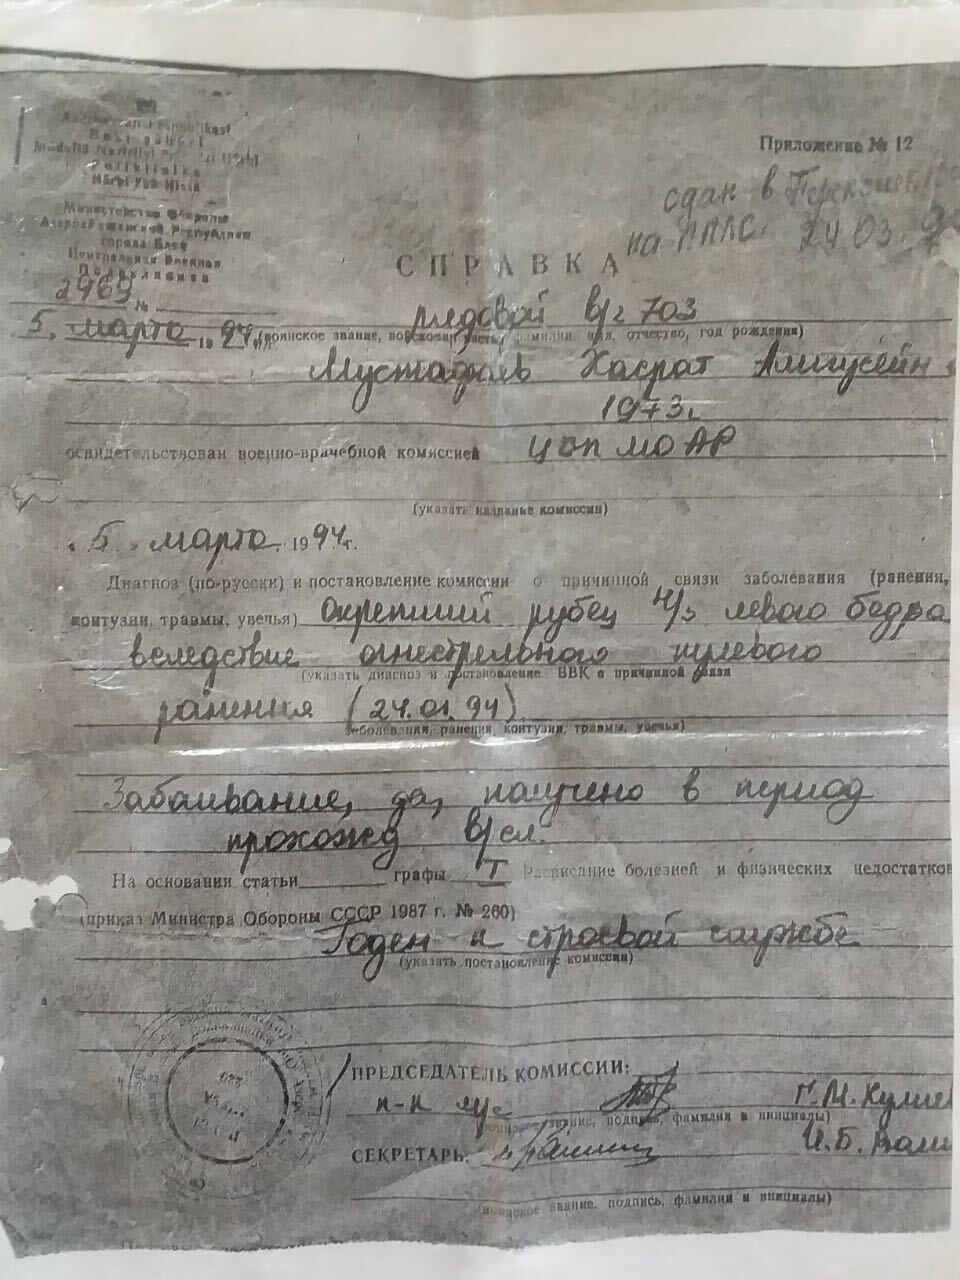 Приложение № 12
сдан в
на ППЛС. 24.03.
Министерство Обороны
Азербайджанской Республики
города Баку
Центральная Военная
Поликлиника
СПРАВКА
2969 №
рядовой в/ч 703
5. марта 1994 г. (воинское звание, войсковая часть, фамилия имя, отчество, год рождения)
Мустафаев Хасрат Алигусейн
1973г.
освидетельствован военно-врачебной комиссией ЦВП МО АР
(указать название комиссии)
„5„ марта 1994г.
Диагноз (по-русски) и постановление комиссии о причинной связи заболевания (ранения,
контузии, травмы, увечья) Окрепший рубец н/з левого бедра
вследствие огнестрельного пулевого
(указать диагноз и постановление ВВК о причинной связи
ранения (24.01.94).
заболевания, ранения, контузии, травмы, увечья)
Заболевание, да, получено в период
прохожд в/сл.
На основании статьи графы I Расписание болезней и физических недостатков
(приказ Министра Обороны СССР 1987 г. № 260)
Годен к строевой службе
(указать постановление комиссии)
ПРЕДСЕДАТЕЛЬ КОМИССИИ:
п-к м/с Г.М.
(воинское звание, подпись, фамилия и инициалы)
СЕКРЕТАРЬ: И.Б.
(воинское звание, подпись, фамилия и инициалы)